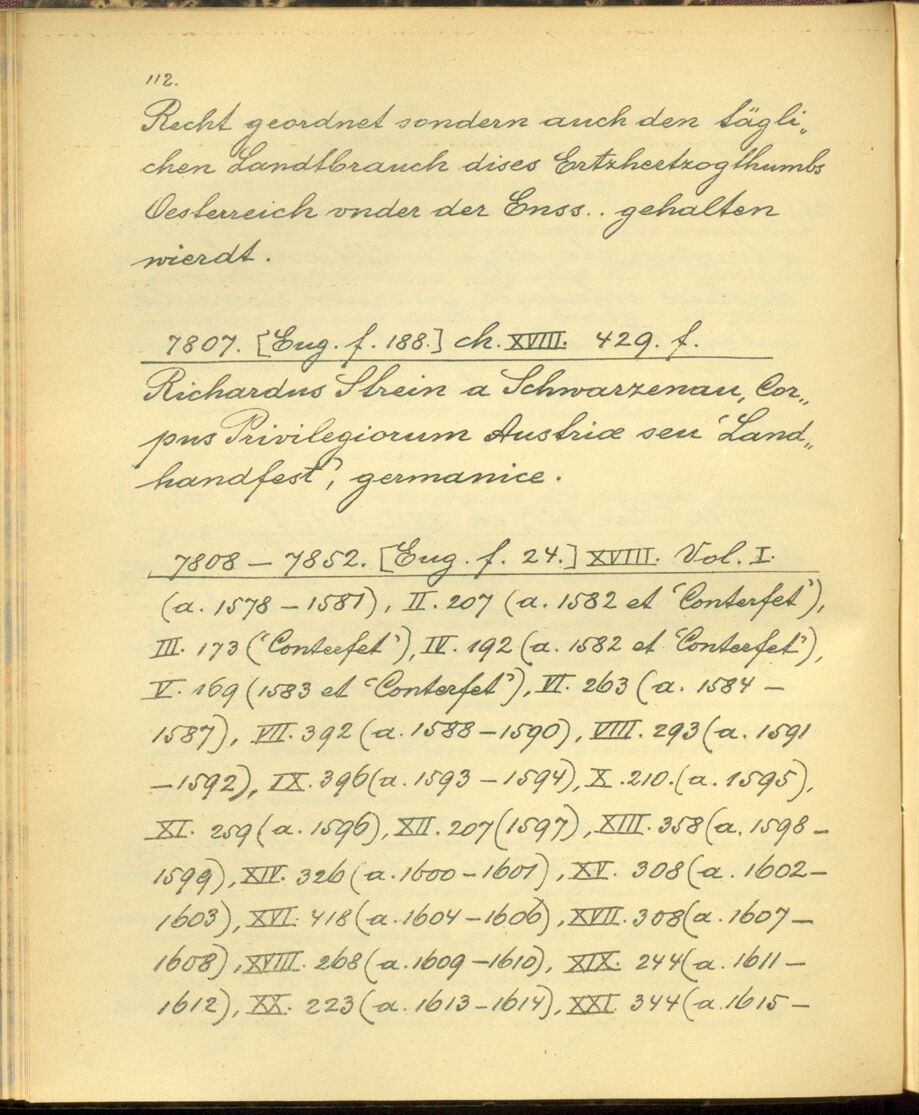 112.
Recht geordnet sondern auch den tägli„
chen Landtbrauch dises Ertzhertzogthumbs
Oesterreich vnder der Enss.. gehalten
wierdt.
7807. [Eug. f. 188.] ch. XVIII. 429. f.
Richardus Strein a Schwarzenau, Cor„
pus Privilegiorum Austriæ seu 'Land„
handfest', germanice.
7808 – 7852. [Eug. f. 24.] XVIII. Vol. I.
(a. 1578 – 1581), II. 207 (a. 1582 et 'Conterfet'),
III. 173 ('Conterfet'), IV. 192 (a. 1582 et 'Conterfet'),
V. 169 (1583 et 'Conterfet'), VI. 263 (a. 1584 –
1587), VII. 392 (a. 1588 – 1590), VIII. 293 (a. 1591
– 1592), IX. 396 (a. 1593 – 1594), X. 210. (a. 1595),
XI. 259 (a. 1596), XII. 207 (1597), XIII. 358 (a. 1598 –
1599), XIV. 326 (a. 1600 – 1601), XV. 308 (a. 1602 –
1603), XVI. 418 (a. 1604 – 1606), XVII. 308 (a. 1607 –
1608), XVIII. 268 (a. 1609 – 1610), XIX. 244 (a. 1611 –
1612), XX. 223 (a. 1613 – 1614), XXI. 344 (a. 1615 –